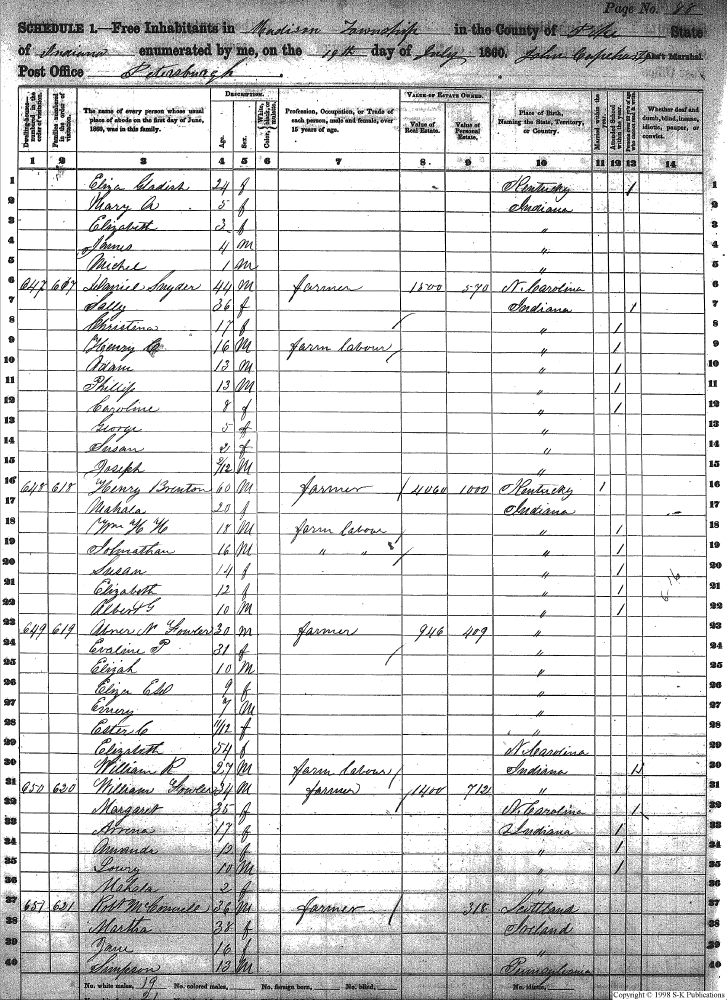 Page No. 88
SCHEDULE 1.—Free Inhabitants in Madison Township in the County of Pike State
of Indiana enumerated by me, on the 19th day of July 1860. John Capehart Ass't Marshal.
Post Office Petersburgh.
Dwelling-houses—numbered in the order of visitation. Families numbered in the order of visitation. The name of every person whose usual place of abode on the first day of June, 1860, was in this family. DESCRIPTION. Age. Sex. Color, White, black, or mulatto. Profession, Occupation, or Trade of each person, male and female, over 15 years of age. VALUE OF ESTATE OWNED. Value of Real Estate. Value of Personal Estate. Place of Birth, Naming the State, Territory, or Country. Married within the year. Attended School within the year. Persons over 20 y'rs of age who cannot read & write. Whether deaf and dumb, blind, insane, idiotic, pauper, or convict.
1 2 3 4 5 6 7 8 9 10 11 12 13 14
1 Eliza Gladish 24 f Kentucky / 1
2 Mary A 5 f Indiana 2
3 Elizabeth 3 f " 3
4 James 4 m " 4
5 Michel 1 m " 5
6 647 617 Daniel Snyder 44 M farmer 1500 570 N. Carolina 6
7 Sally 36 f Indiana / 7
8 Christena 17 f " / 8
9 Henry 16 M farm labour " / 9
10 Adam 13 M " / 10
11 Phillip 13 M " / 11
12 Caroline 8 f " / 12
13 George 5 f " 13
14 Susan 2 f " 14
15 Joseph 2/12 M " 15
16 648 618 Henry Brenton 60 M farmer 4060 1000 Kentucky 1 16
17 Mahala 20 f Indiana 17
18 Wm H H 18 M farm labour " / 18
19 Johnathan 16 M " " " / 19
20 Susan 14 f " / 20
21 Elizabeth 12 f " / 21
22 Albert G 10 M " / 22
23 649 619 Abner N Fowler 30 m farmer 946 409 " 23
24 Evaline P 31 f " 24
25 Elizah 10 M " 25
26 Eliza 9 f " 26
27 Emery 7 M " 27
28 Ester C 11/12 f " 28
29 Elizabeth 54 f N. Carolina 29
30 William R 27 M farm labour Indiana 30
31 650 620 William Fowler 34 M farmer 1400 712 " 31
32 Margaret 35 f N. Carolina / 32
33 Arvena 17 f Indiana / 33
34 Amanda 12 f " / 34
35 Lowry 10 M " / 35
36 Mahala 2 f " 36
37 651 621 Robt McConnell 36 M farmer 318 Scottland 37
38 Martha 38 f Ireland 38
39 Jane 16 f " 39
40 Simpson 13 M Pennsylvania 40
No. white males, 19 No. colored males, No. foreign born, No. blind, No. idiotic,
21
Copyright © 1998 S-K Publications